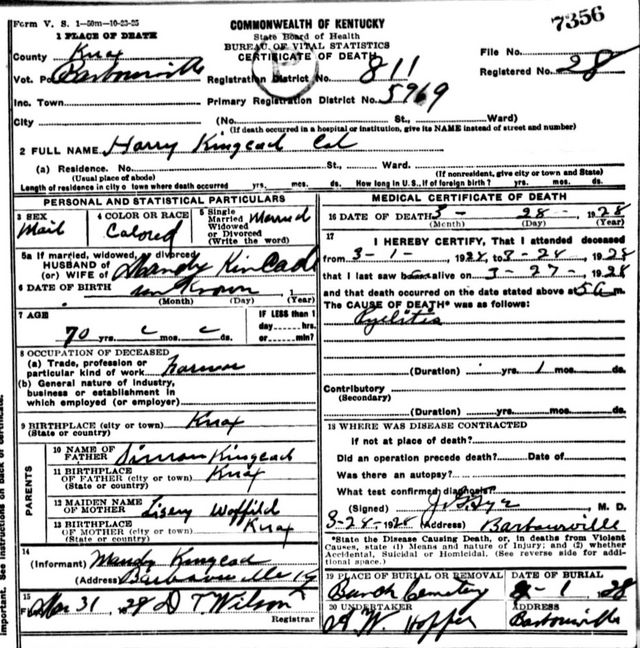 Form V. S. 1—50m—10-23-25
COMMONWEALTH OF KENTUCKY
State Board of Health
BUREAU OF VITAL STATISTICS
CERTIFICATE OF DEATH
7356
1 PLACE OF DEATH
County Knox
Vot. Barbourville
Inc. Town
City
Registration District No. 811
Primary Registration District No. 5969
File No.
Registered No. 28
(No. St., Ward)
(If death occurred in a hospital or institution, give its NAME instead of street and number)
2 FULL NAME Harry Kingcad Col
(a) Residence. No. St., Ward.
(Usual place of abode) (If nonresident, give city or town and State)
Length of residence in city or town where death occurred yrs. mos. ds. How long in U.S., if of foreign birth? yrs. mos. ds.
PERSONAL AND STATISTICAL PARTICULARS
3 SEX
Mail
4 COLOR OR RACE
Colored
5 Single
Married
Widowed
or Divorced
(Write the word)
Married
5a If married, widowed, or divorced
HUSBAND OF
(or) WIFE OF Mandy Kincad
6 DATE OF BIRTH unknown
(Month) (Day) (Year)
7 AGE
70 yrs. mos. ds.
IF LESS than 1
day hrs.
or min?
8 OCCUPATION OF DECEASED
(a) Trade, profession or
particular kind of work farmer
(b) General nature of industry,
business or establishment in
which employed (or employer)
9 BIRTHPLACE (city or town) Knox
(State or country)
PARENTS
10 NAME OF
FATHER Simon Kingcad
11 BIRTHPLACE
OF FATHER (city or town) Knox
(State or country)
12 MAIDEN NAME
OF MOTHER Woffild
13 BIRTHPLACE
OF MOTHER (city or town) Knox
(State or country)
14
(Informant) Mandy Kingcad
(Address) Barbourville Ky
15
Mar 31, 1928 D T Wilson
Registrar
MEDICAL CERTIFICATE OF DEATH
16 DATE OF DEATH 3 - 28 - 1928
(Month) (Day) (Year)
17
I HEREBY CERTIFY, That I attended deceased
from 3-1- 1928, to 3-28, 1928
that I last saw alive on 3-27-, 1928
and that death occurred on the date stated above at 5 a m.
The CAUSE OF DEATH* was as follows:
Pyelitis
(Duration) yrs. 1 mos. ds.
Contributory
(Secondary)
(Duration) yrs. mos. ds.
18 WHERE WAS DISEASE CONTRACTED
If not at place of death?
Did an operation precede death? Date of
Was there an autopsy?
What test confirmed diagnosis?
(Signed) M. D.
3-28-1928 (Address) Barbourville
*State the Disease Causing Death, or, in deaths from Violent
Causes, state (1) Means and nature of Injury; and (2) whether
Accidental, Suicidal or Homicidal. (See reverse side for addi-
tional space.)
19 PLACE OF BURIAL OR REMOVAL
Cemetery
DATE OF BURIAL
1 - 28
20 UNDERTAKER
W. Hopper
ADDRESS
Barbourville
important. See instructions on back of certificate.